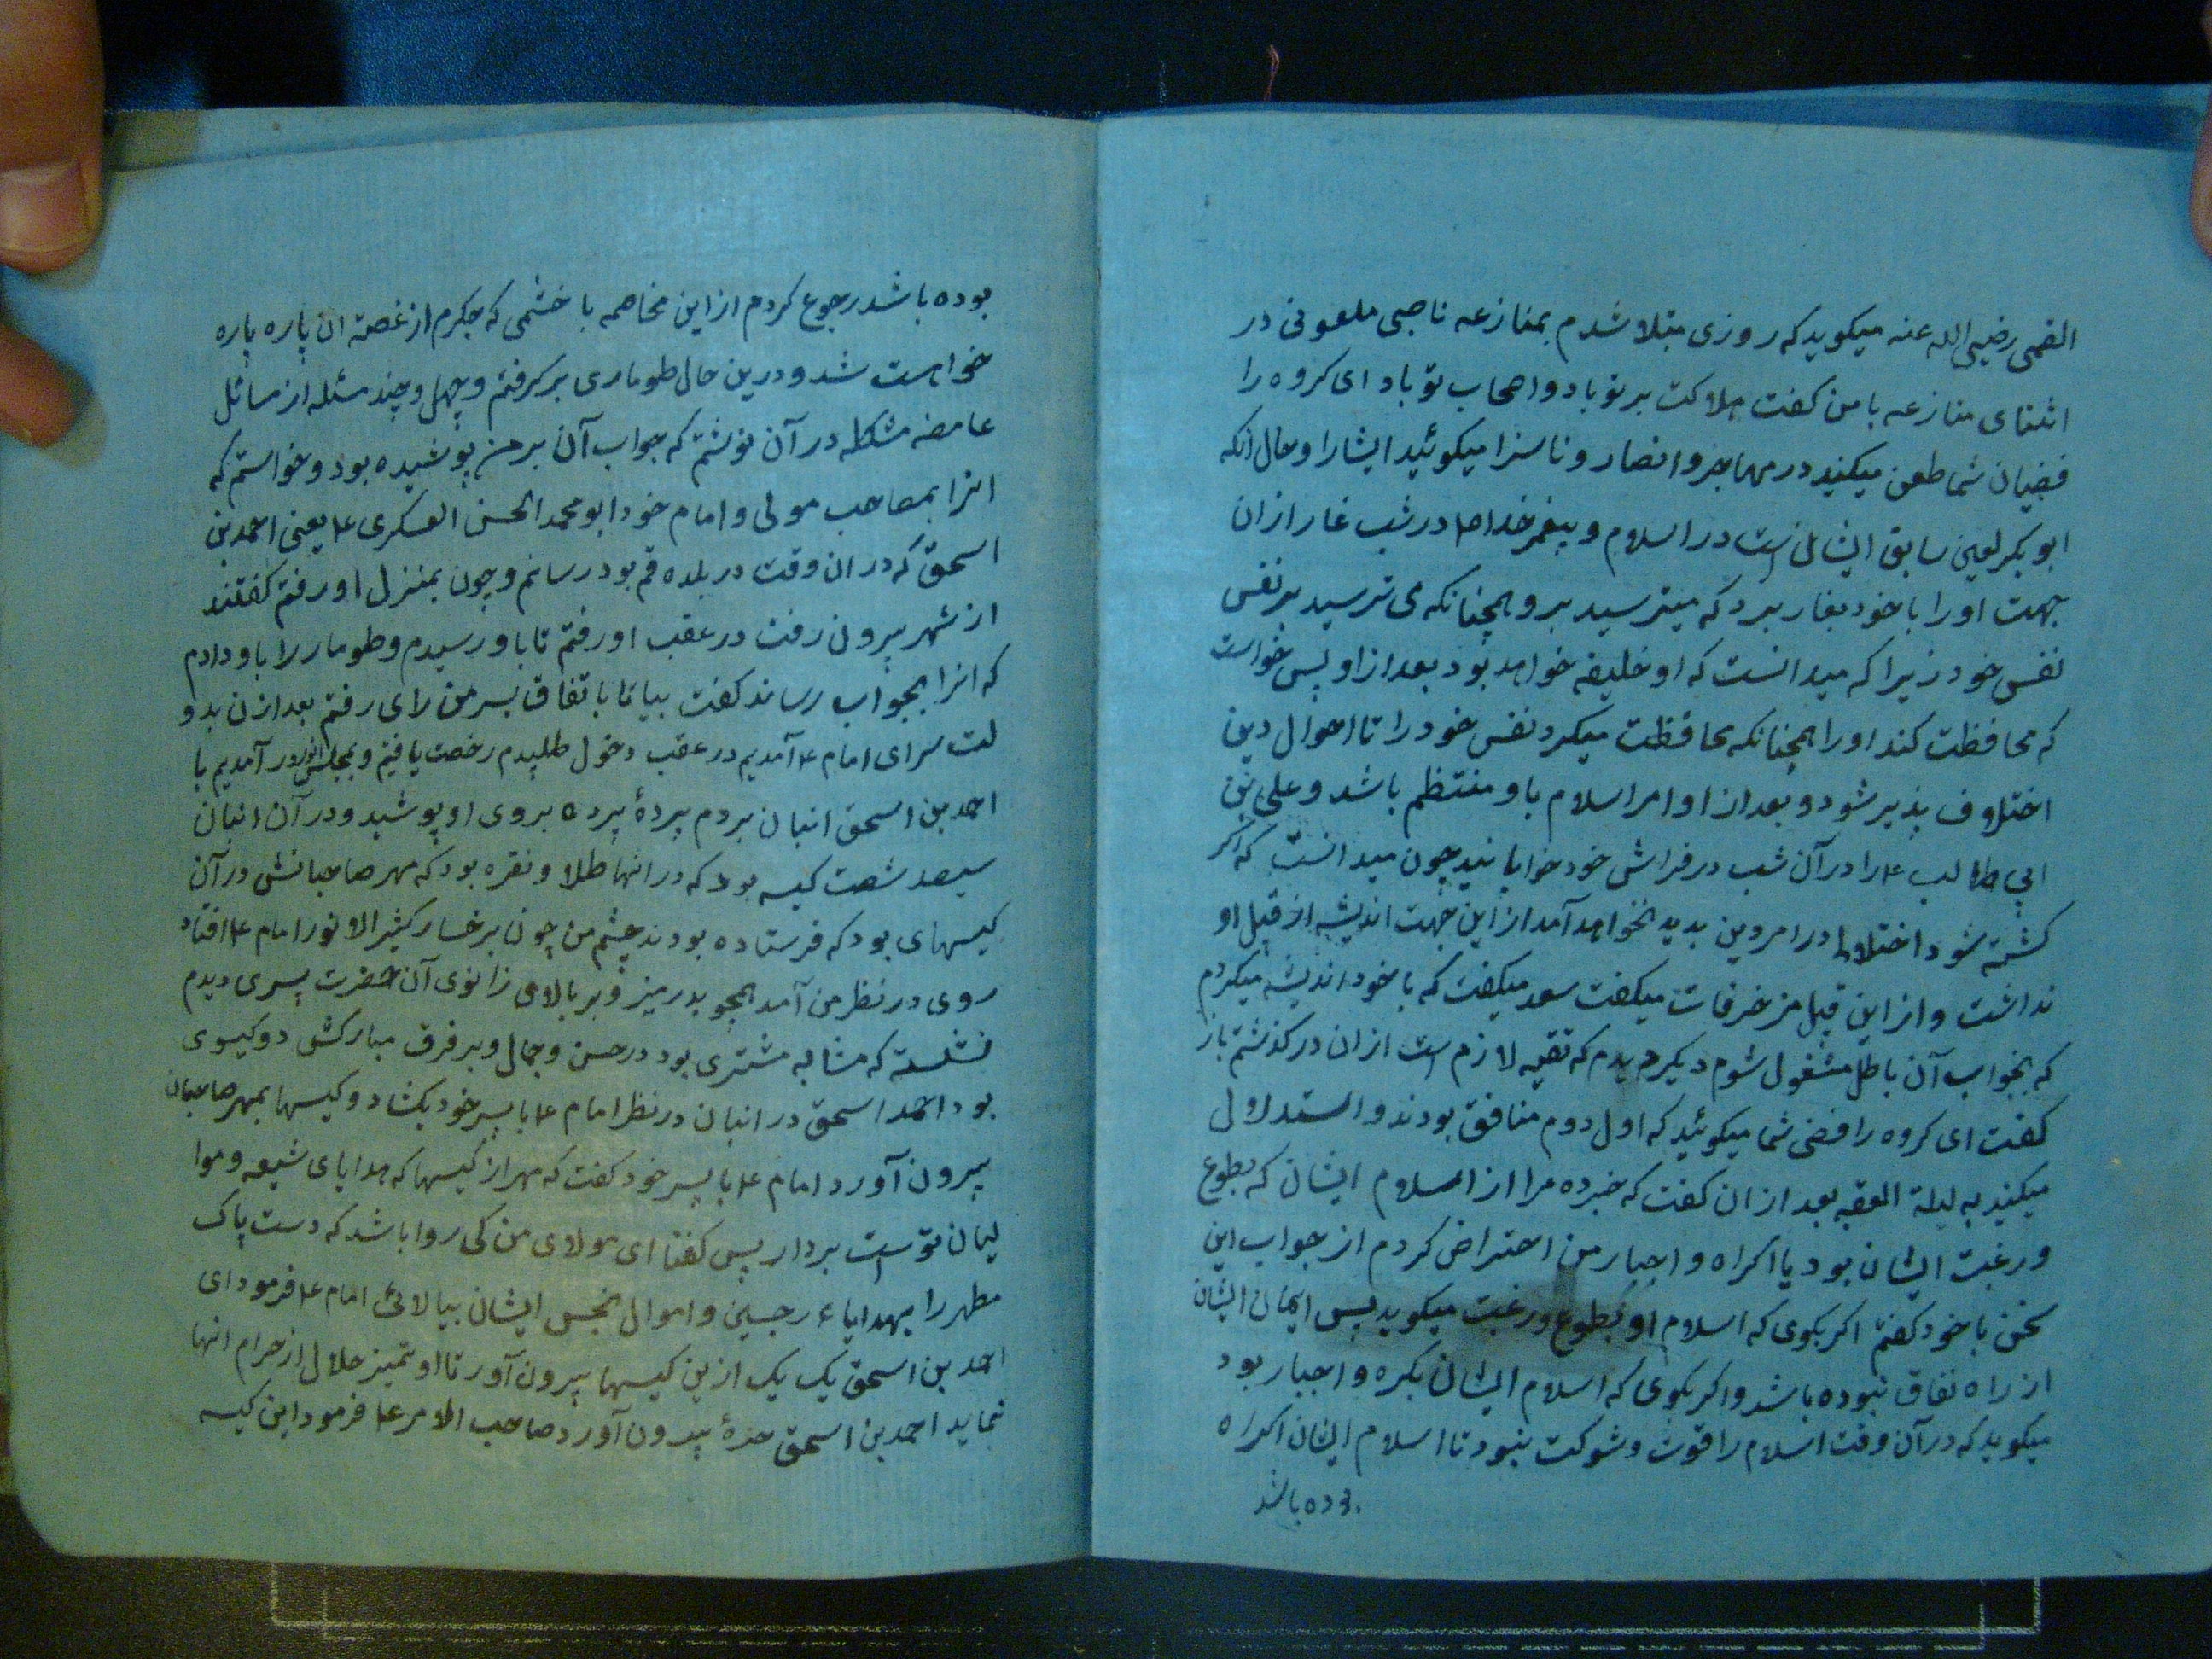 القمی رضیی الله عنه میکوید که روزی مبتلا شدم بمنازعه ناصبی ملعونی در
اثنای منازعه با من کفت هلاکت بر تو باد و اصحاب تو باد ای کروه را
فضیان شما طعن میکنید در مهاجر و انصار و ناسزا میکوئید ایشارا و حال انکه
ابوبکر لعین سابق ایشانست در اسلام و پیغمبر خدا ص در شب غار ازان
جهت او را با خود بغار برد که میترسید بر و همچنانکه می ترسید بر نفس
نفس خود زیرا که میدانست که او خلیفه خواهد بود بعد از او پس خواست
که محافظت کند او را همچنانکه محافظت میکرد نفس خود را تا احوال دین
اختلاف پذیر شود و بعد از او امر اسلام باو منتظم باشد و علی بن
ابی طالب ع را در آن شب در فراش خود خوابانید چون میدانست که اکر
کشته شود اختلال در امر دین بدید نخواهد آمد از این جهت اندیشه از قبل او
نداشت و از این قبل مزخرفات میکفت سعد میکفت که با خود اندیشه میکردم
که بجواب آن باطل مشغول شوم دیکر دیدم که تقیه لازم است ازان در کذشتم باز
کفت ای کروه رافضی شما میکوئید که اول دوم منافق بودند و استدلال
میکنید به لیلة العقبه بعد ازان کفت که خبر ده مرا از اسلام ایشان که بطوع
و رغبت ایشان بود یا اکراه و اجبار من احتراض کردم از جواب این
سخن با خود کفتم اکر بکوی که اسلام او بطوع و رغبت میکوید پس ایمان ایشان
از راه نفاق نبوده باشد و اکر بکوی که اسلام ایشان بکره و اجبار بود
میکوید که در آن وقت اسلام را قوت و شوکت نبود تا اسلام ایشان اکراه
بوده باشد
بوده باشد رجوع کردم از این مخاصمه با خشمی که جکرم از غصهٔ ان پاره پاره
خواست شد و درین حال طوماری بر کرفتم و چهل و چند مسئله از مسائل
غامضه مشکله در آن نوشتم که جواب آن بر من پوشیده بود و خواستم که
انرا بمصاحب مولی و امام خود ابو محمد الحسن العسکری ع یعنی احمد بن
اسحق که در ان وقت در بلده قم بود رسانم و چون بمنزل او رفتم کفتند
از شهر بیرون رفت در عقب او رفتم تا باو رسیدم و طومار را باو دادم
که انرا بجواب رساند کفت بیا تا باتفاق بسر من رای رفتم بعد ازن بدو
لت سرای امام ع آمدیم در عقب دخول طلبیدم رخصت یافتیم و بمجلس در آمدیم با
احمد بن اسحق انبان بردم پردهٔ پرده بروی او پوشید و در آن انبان
سیصد شصت کیسه بود که در انها طلا و نقره بود که مهر صاحبانش در آن
کیسهای بود که فرستاده بودند چشم من چون بر خسار کثیر الانور امام ع افتاد
روی در نظر من آمد همچو بدر منیر و بر بالای زانوی آن حضرت پسری دیدم
نشسته که مشابه مشتری بود در حسن و جمال و بر فرق مبارکش دو کیسوی
بود احمد اسحق در انبان در نظر امام ع با پسر خود بکشاد و کیسها بمهر صاحبان
بیرون آورد امام ع با پسر خود کفت که مهر از کیسها که هدایای شیعه و موا
لیان توست بردار پس کفتا ای مولای من کی روا باشد که دست پاک
مطهر را بهدایاء رجسین و اموال نجس ایشان بیالائی امام ع فرمود ای
احمد بن اسحق یک یک ازین کیسها بیرون آور تا او تمییز حلال از حرام انها
نماید احمد بن اسحق صرهٔ بیرون آورد صاحب الامر ع فرمود این کیسه